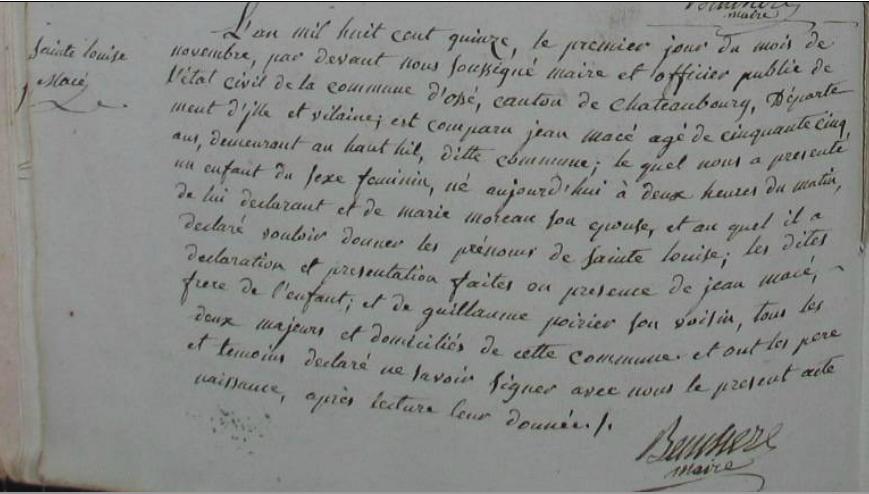 maire
Sainte louise
Macé
L'an mil huit cent quinze, le premier jour du mois de
novembre, par devant nous soussigné maire et officier public de
l'état civil de la commune d'ossé, canton de Chateaubourg, Départe
ment d'jlle et vilaine; est comparu jean macé agé de cinquante cinq
ans, demeurant au haut hil, ditte commune; le quel nous a presenté
un enfant du sexe feminin, né aujourd'hui à deux heures du matin,
de lui declarant et de marie moreau son epouse, et au quel il a
declaré vouloir donner les prénoms de sainte louise; les dites
declaration et presentation faites en presence de jean macé,
frere de l'enfant; et de guillaume poirier son voisin, tous les
deux majeurs et domiciliés de cette commune. et ont les pere
et temoins declaré ne savoir signer avec nous le present acte
naissance, après lecture leur donnée./.
maire